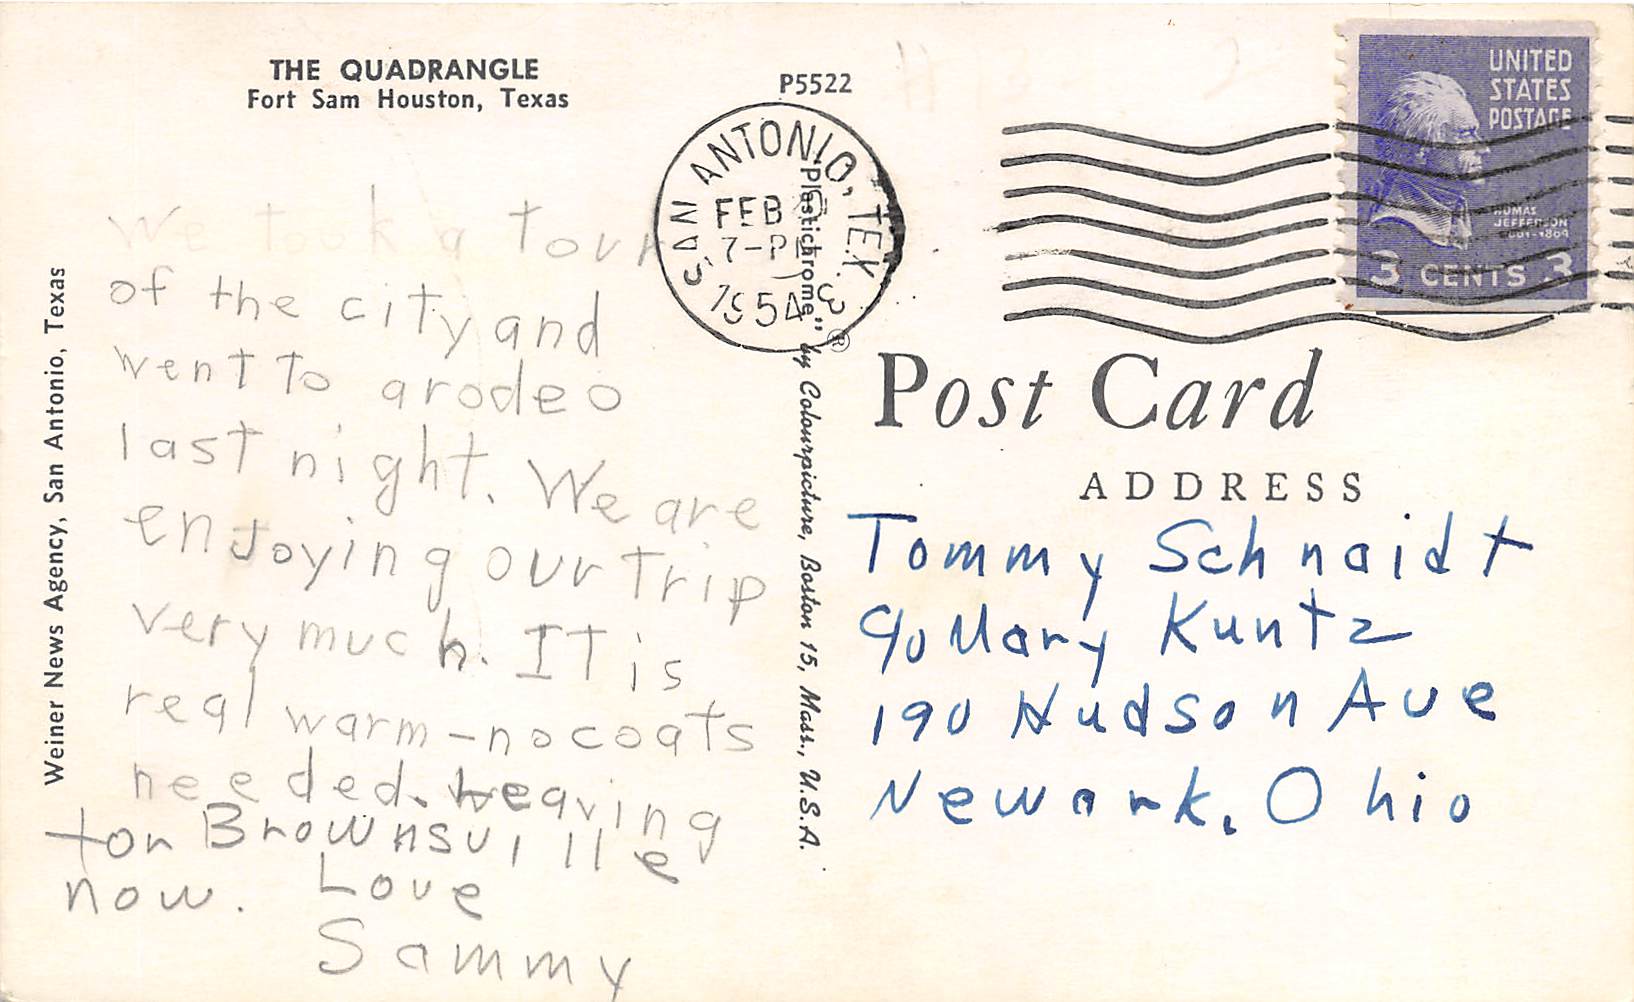 THE QUADRANGLE
Fort Sam Houston, Texas
P5522
We took a tour
of the city and
went to a rodeo
last night. We are
enjoying our trip
very much. It is
real warm - no coats
needed. Leaving
for Brownsville
now. Love
Sammy
Weiner News Agency, San Antonio, Texas
"Plastichrome"® by Colourpicture, Boston 15, Mass., U.S.A.
SAN ANTONIO, TEX. 3
FEB
7-P
1954
UNITED
STATES
POSTAGE
THOMAS
JEFFERSON
3 CENTS 3
Post Card
ADDRESS
Tommy Schnaidt
c/o Mary Kuntz
190 Hudson Ave
Newark, Ohio